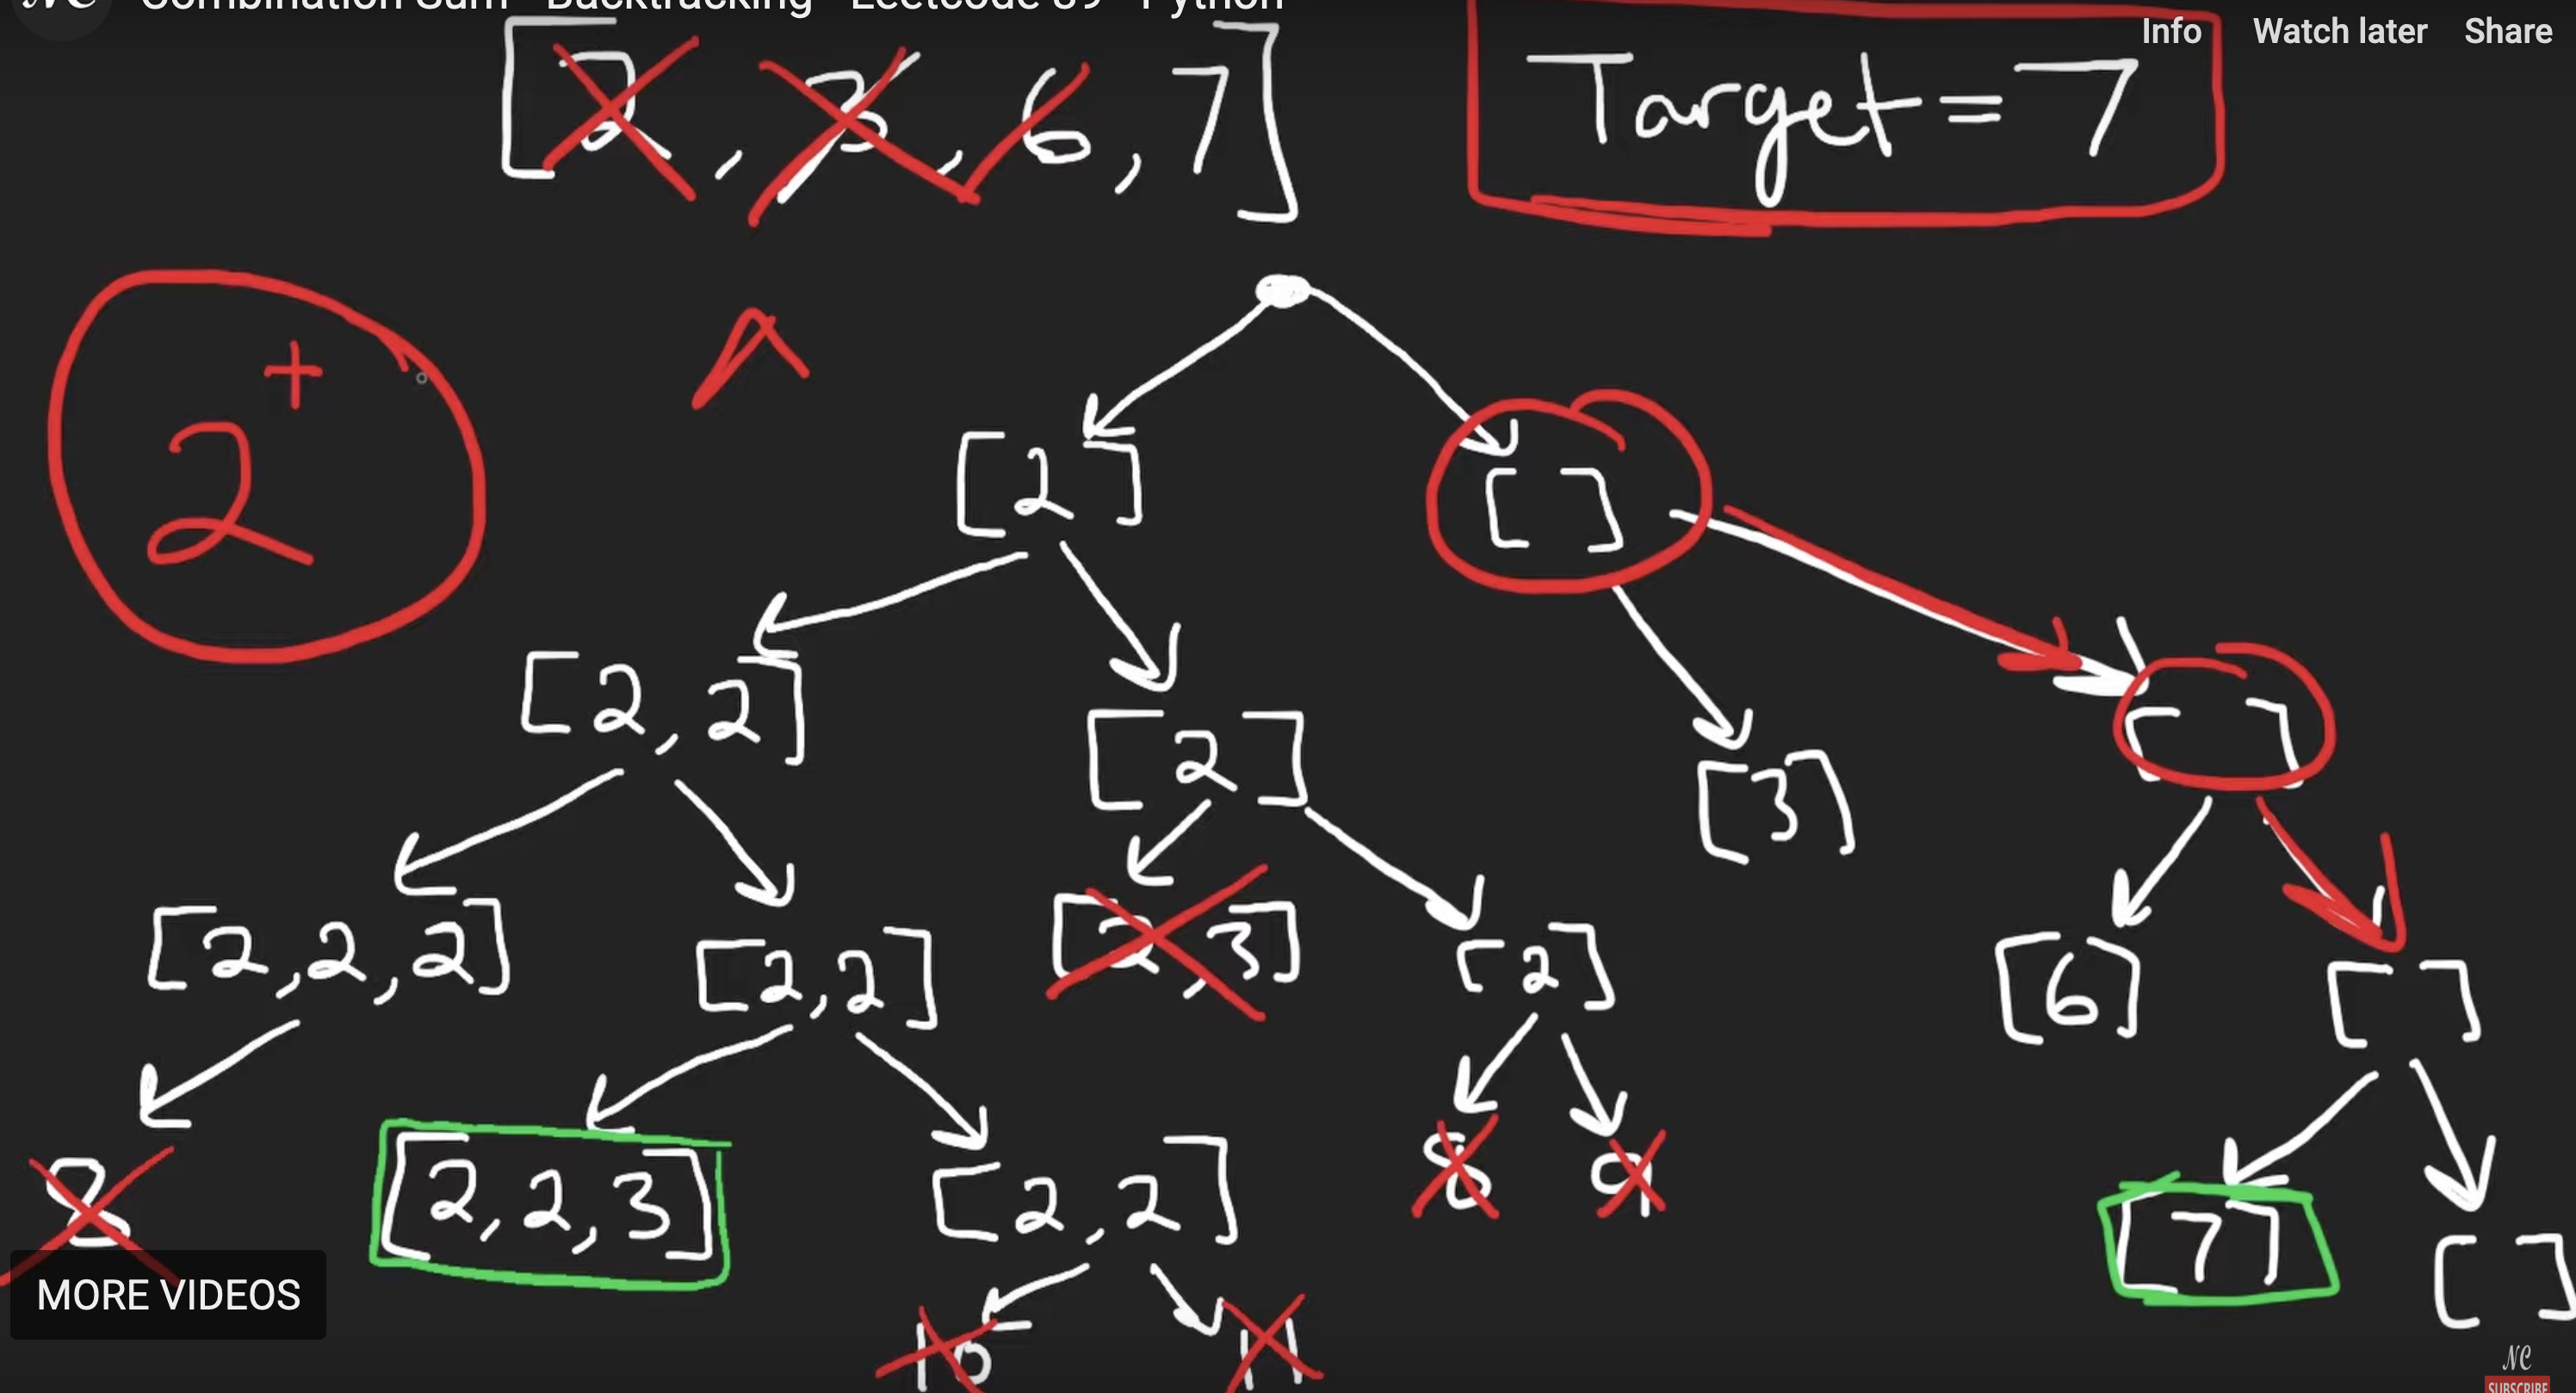 Combination Sum - Backtracking - Leetcode 39 - Python
Info Watch later Share
[2, 3, 6, 7]
Target = 7
2+
[2] []
[2, 2] [2] [3] []
[2,2,2] [2,2] [2,3] [2] [6] []
8 [2,2,3] [2,2] 8 9 [7] []
10 11
MORE VIDEOS
NC
SUBSCRIBE